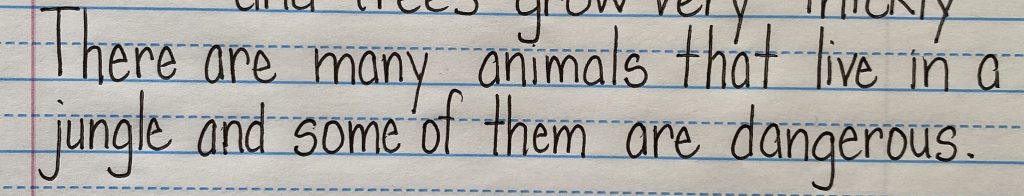 and trees grow very thickly
There are many animals that live in a
jungle and some of them are dangerous.